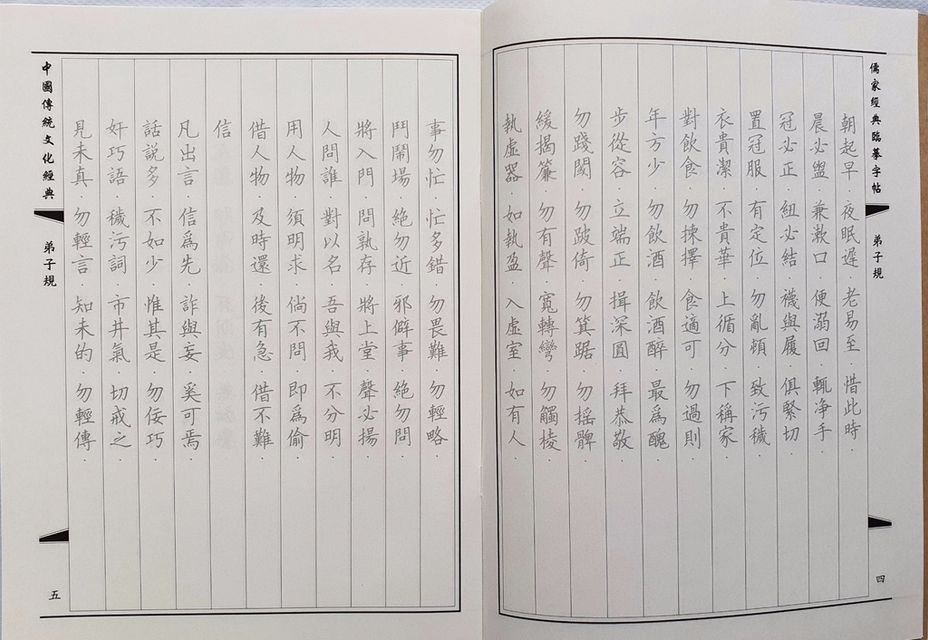 儒家經典臨摹字帖
弟子規
四
朝起早．夜眠遲．老易至．惜此時．
晨必盥．兼漱口．便溺回．輒净手．
冠必正．紐必結．襪與履．俱緊切．
置冠服．有定位．勿亂頓．致污穢．
衣貴潔．不貴華．上循分．下稱家．
對飲食．勿揀擇．食適可．勿過則．
年方少．勿飲酒．飲酒醉．最爲醜．
步從容．立端正．揖深圓．拜恭敬．
勿踐閾．勿跛倚．勿箕踞．勿搖髀．
緩揭簾．勿有聲．寬轉彎．勿觸棱．
執虛器．如執盈．入虛室．如有人．
事勿忙．忙多錯．勿畏難．勿輕略．
鬥鬧場．絕勿近．邪僻事．絕勿問．
將入門．問孰存．將上堂．聲必揚．
人問誰．對以名．吾與我．不分明．
用人物．須明求．倘不問．即爲偷．
借人物．及時還．後有急．借不難．
信
凡出言．信爲先．詐與妄．奚可焉．
話説多．不如少．惟其是．勿佞巧．
奸巧語．穢污詞．市井氣．切戒之．
見未真．勿輕言．知未的．勿輕傳．
中國傳統文化經典
弟子規
五